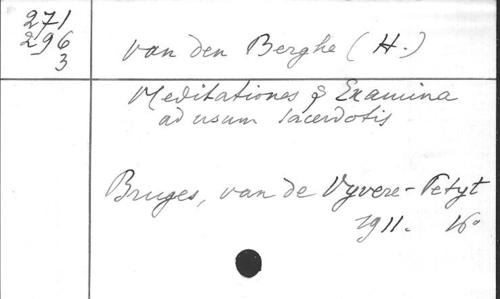 271
296
3
van den Berghe (H.)
Meditationes & Examina
ad usum sacerdotis
Bruges, van de Vyvere-Petyt
1911. 16°